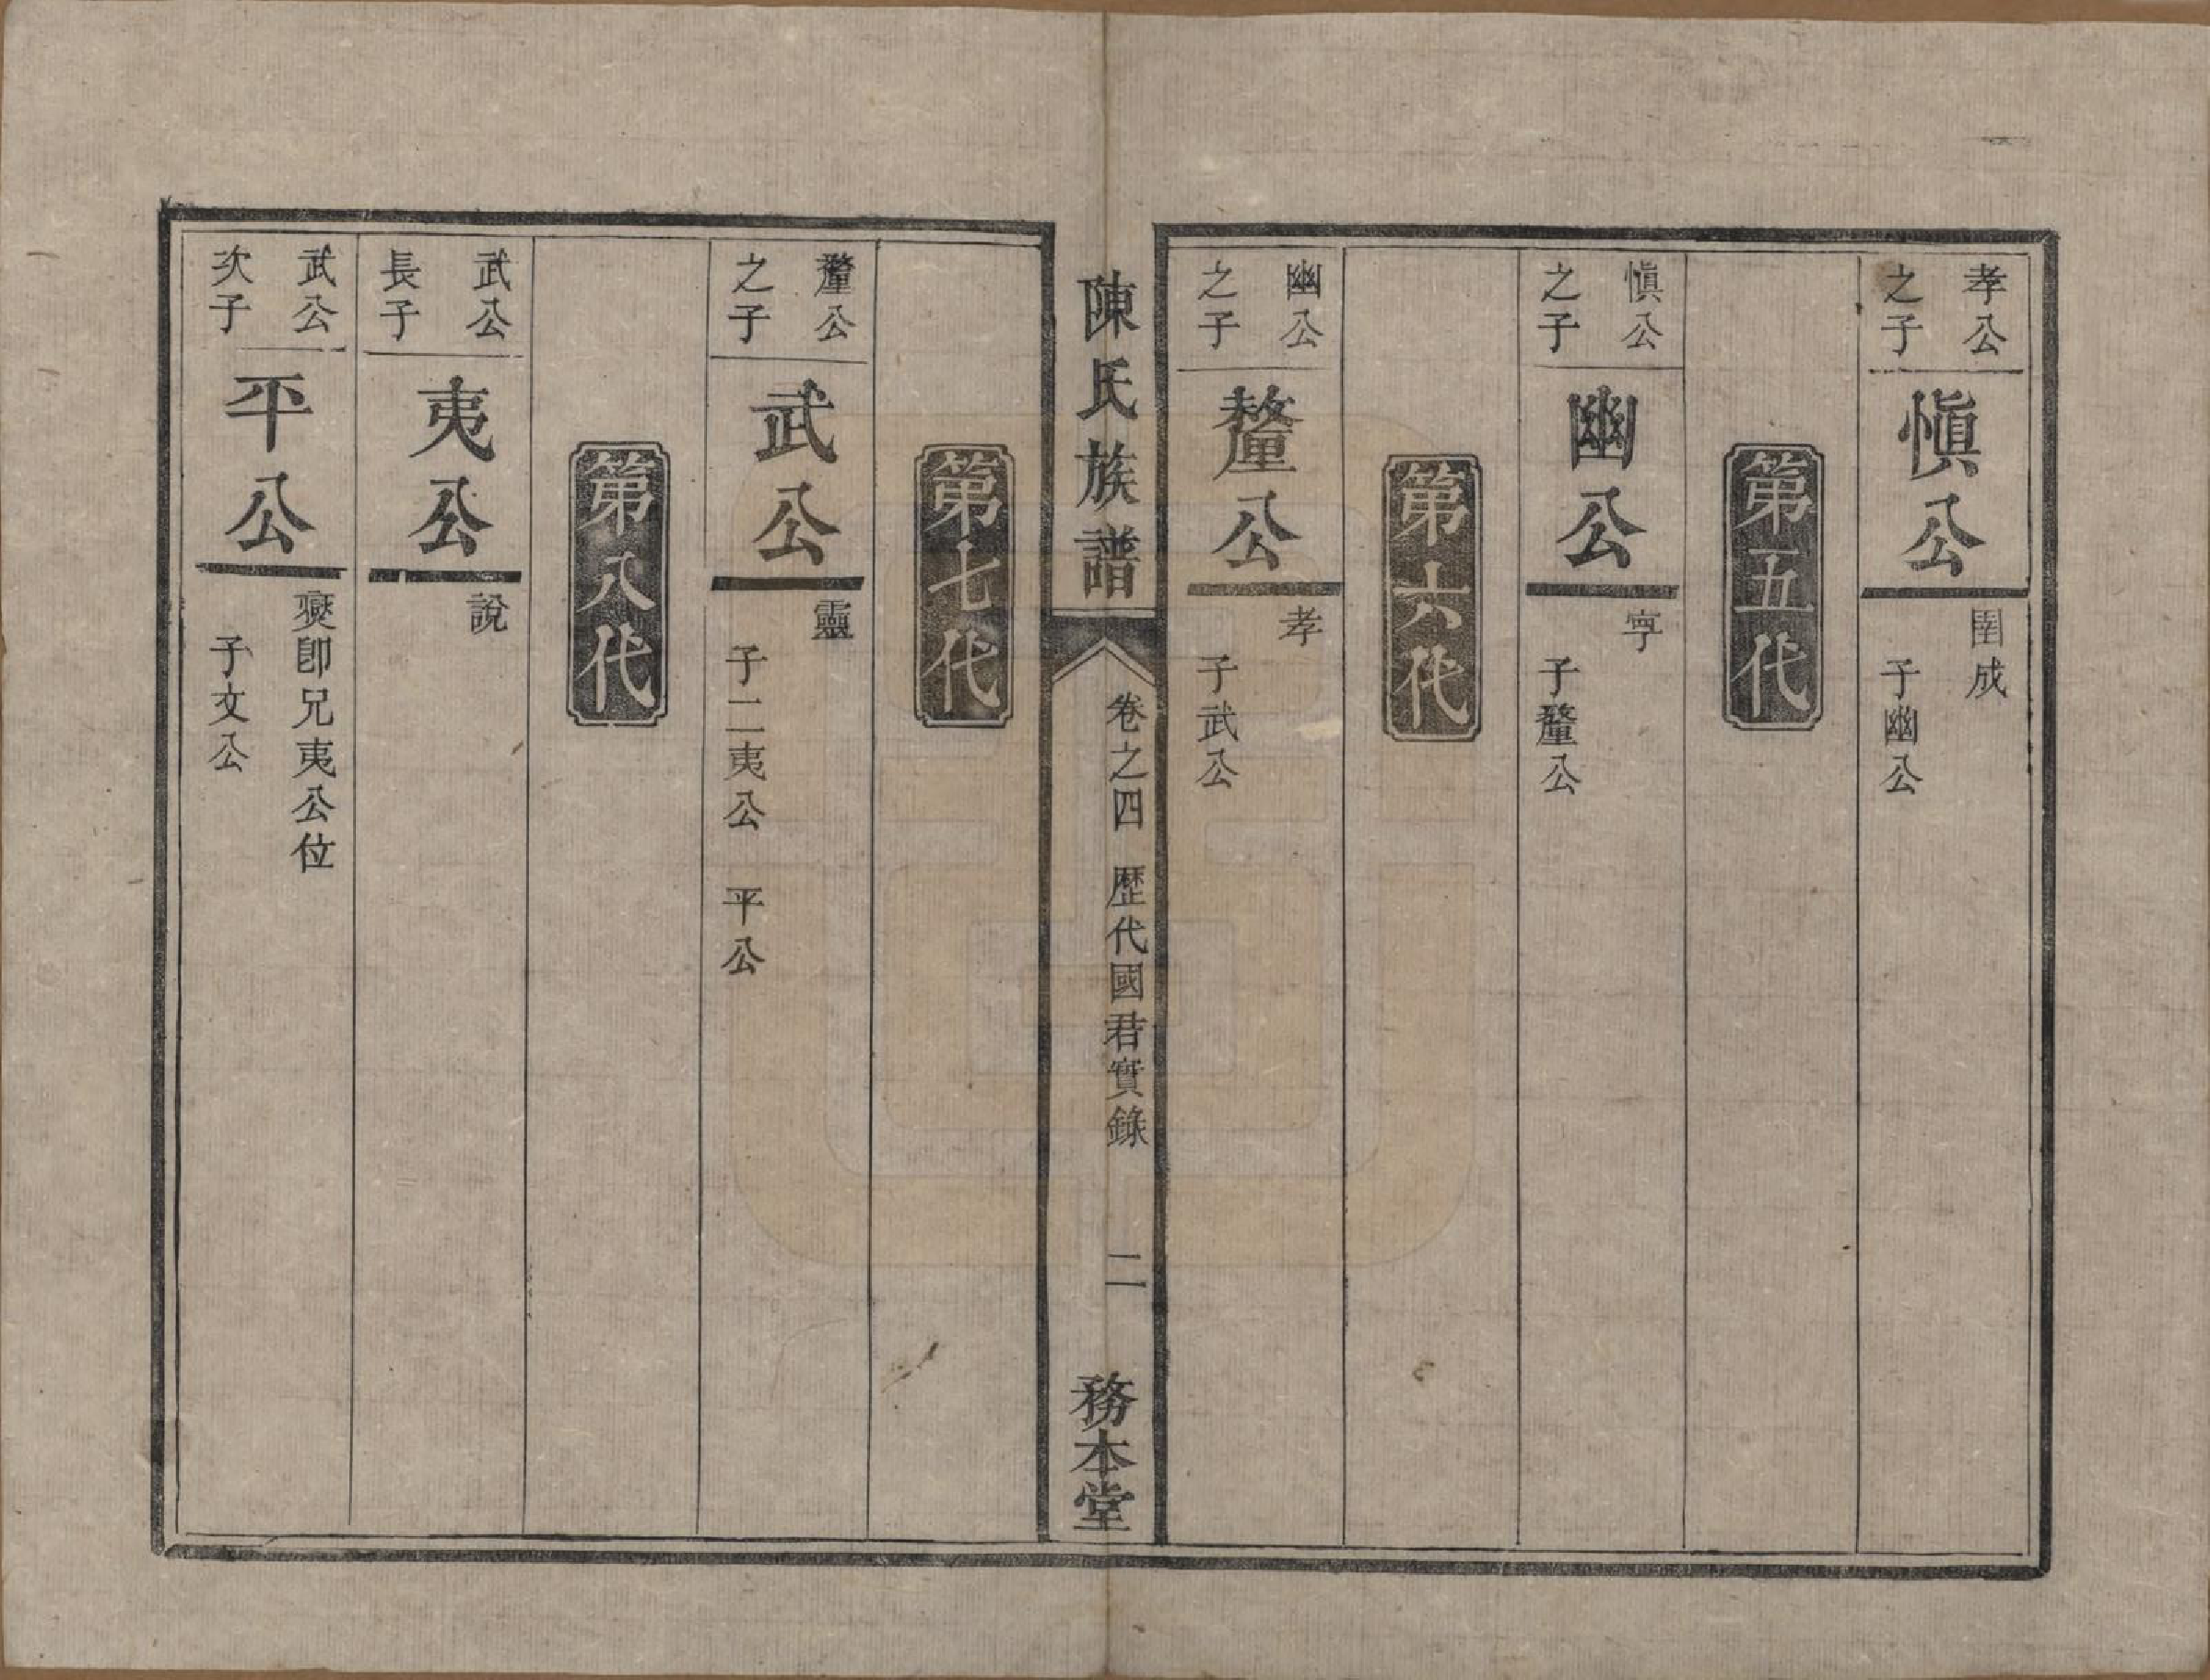 孝公
之子
慎公
圉成
子幽公
第五代
慎公
之子
幽公
寕
子釐公
第六代
幽公
之子
釐公
孝
子武公
陳氏族譜
卷之四 歷代國君實錄
二
務本堂
第七代
釐公
之子
武公
靈
子二夷公 平公
第八代
武公
長子
夷公
說
武公
次子
平公
燮卽兄夷公位
子文公